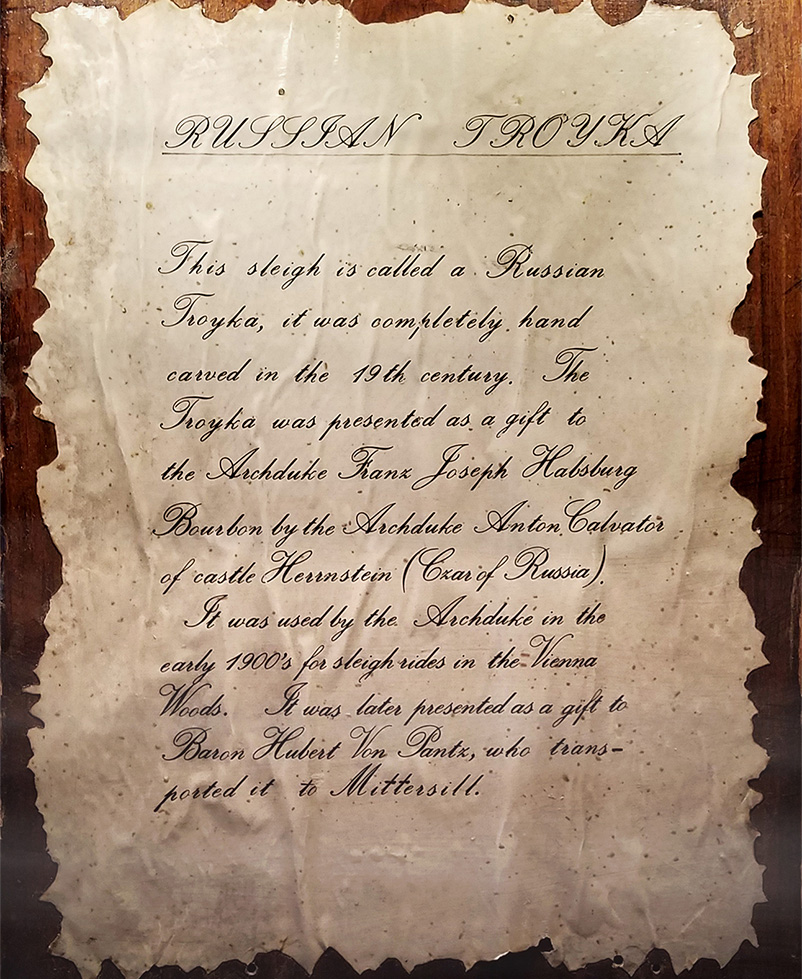 RUSSIAN TROYKA
This sleigh is called a Russian
Troyka, it was completely hand
carved in the 19th century. The
Troyka was presented as a gift to
the Archduke Franz Joseph Habsburg
Bourbon by the Archduke Anton Calvator
of castle Herrnstein (Czar of Russia).
It was used by the Archduke in the
early 1900's for sleigh rides in the Vienna
Woods. It was later presented as a gift to
Baron Hubert Von Pantz, who trans-
ported it to Mittersill.